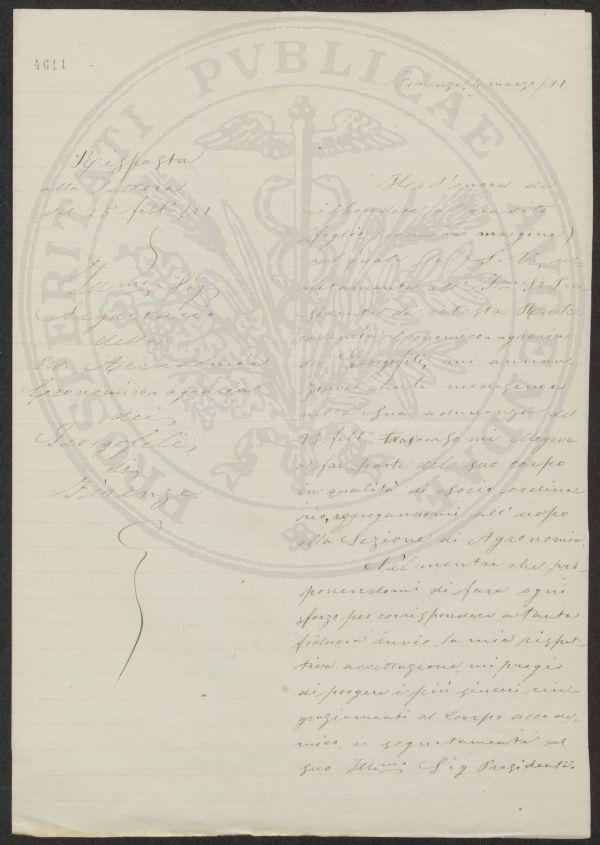 4611
Firenze, 4 marzo/71
Risposta
alla lettera
del 25 febb°/71
Illmo Sig
Segretario
della
Rle Accademia
Economico agraria
dei
Georgofili
di
Firenze
Ho l'onore di
rispondere al gradito
foglio (come in margine)
col quale la S. V., u
nitamente all' Illmo Sr Pre
sidente di cotesta R. Ac
cademia Economico agraria
dei Georgofili, mi annun
ziava la medesima
nella sua adunanza del
febb° trascorso mi eleggeva
a far parte del suo corpo
in qualità di socio ordina
rio, aggregandomi all' uopo
alla Sezione di Agronomia.
Nel mentre che pro
ponendomi di fare ogni
sforzo per corrispondere a tanta
fiducia invio la mia rispet
tiva accettazione, mi pregio
di porgere i più sinceri rin
graziamenti al Corpo accade
mico, e segnatamente al
suo Illmo Sig Presidente.
PROSPERITATI PVBLICAE AVGENDAE